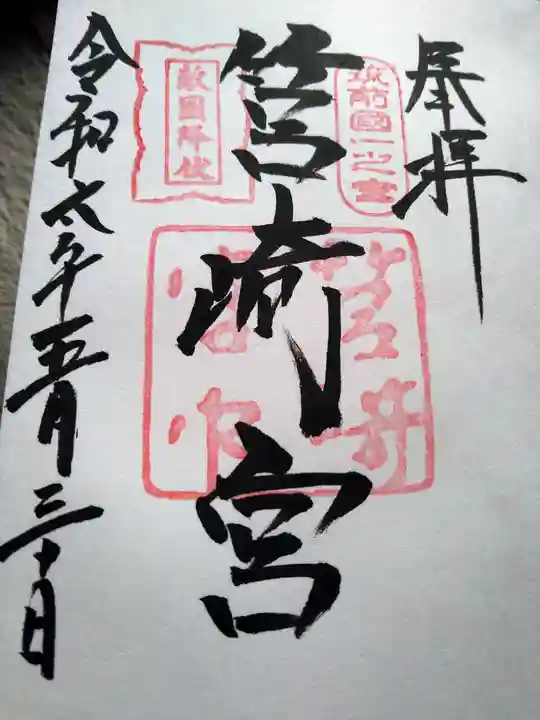 奉拝
筑前國一之宮
筥崎宮
敵國降伏
令和六年五月三十日